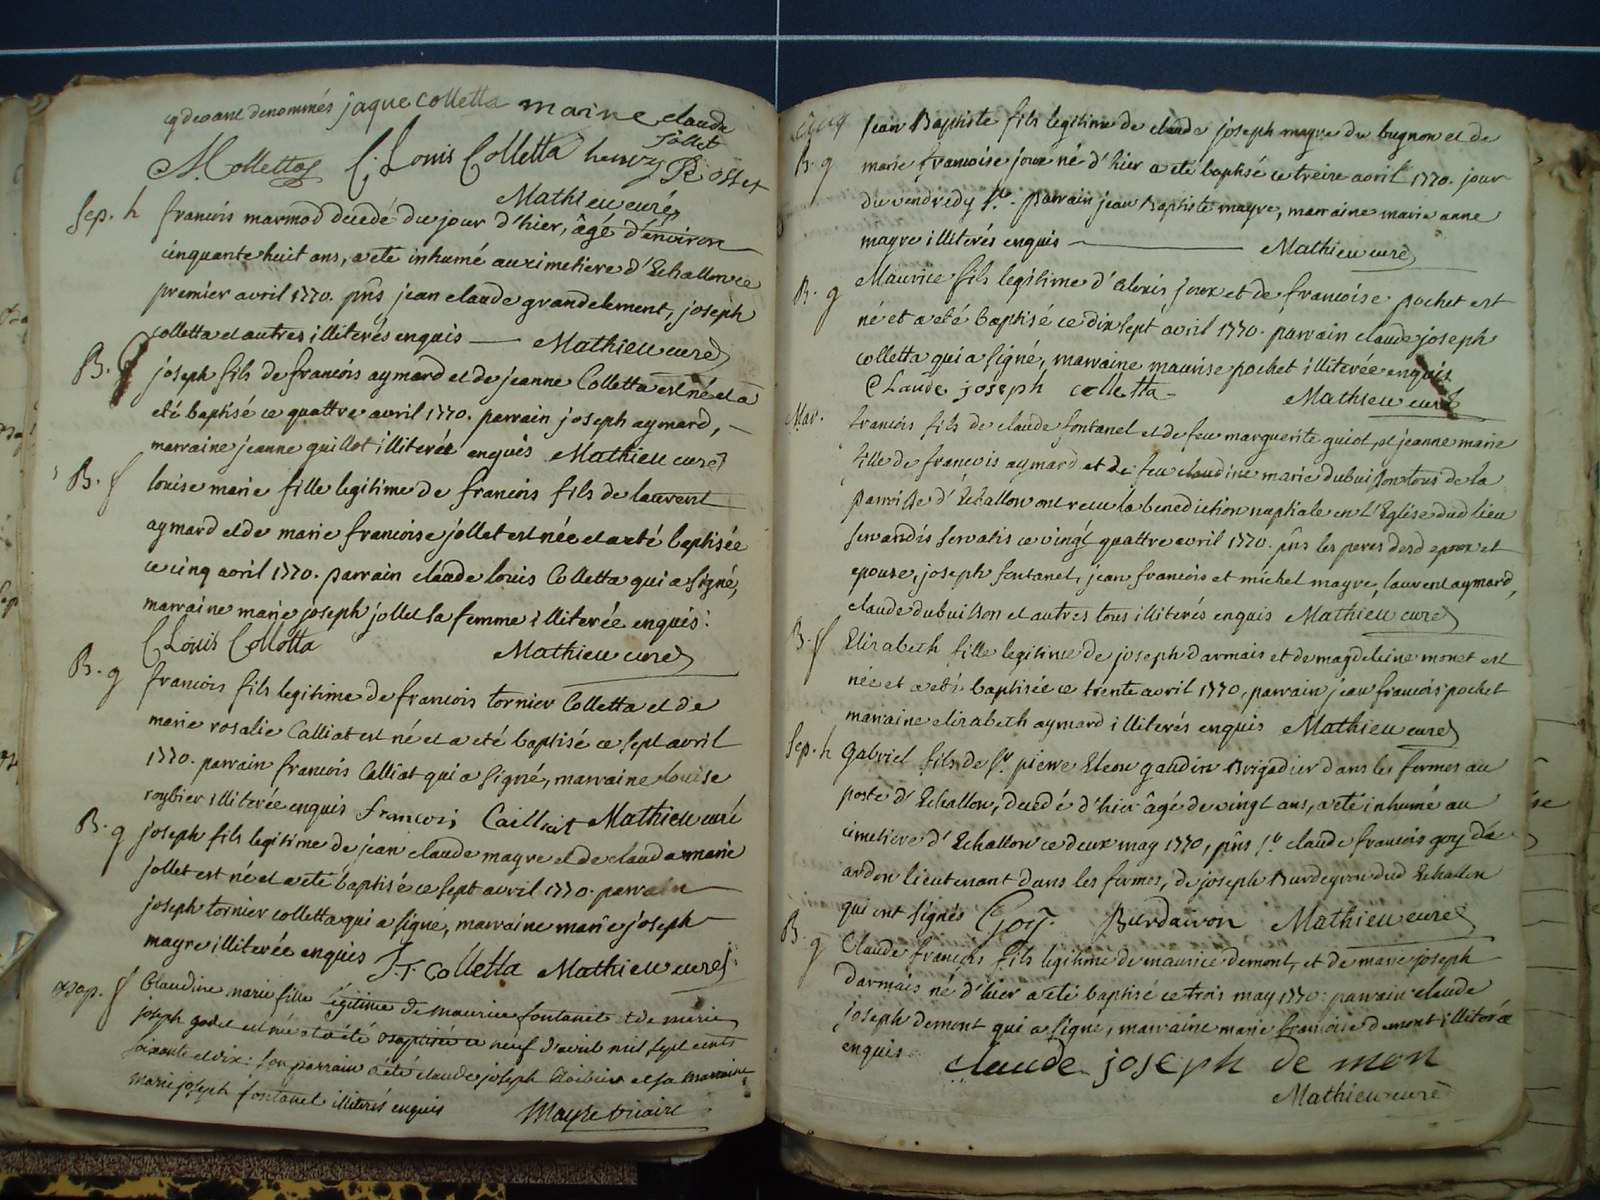 cy devant denommés jaque colletta marine claude
jollet
M. Collettas C. Louis Colletta henry Rosset
Mathieu curé
Sep. h françois marmod decedé du jour d'hier, âgé d'environ
cinquante huit ans, a eté inhumé au cimetiere d'Echallon ce
premier avril 1770. pns jean claude grandclement, joseph
colletta et autres illiterés enquis Mathieu curé
B. g joseph fils de françois aymard et de jeanne Colletta est né et a
eté baptisé ce quattre avril 1770. parrain joseph aymard,
marraine jeanne guillot illiterés enquis Mathieu curé
B. f louise marie fille legitime de françois fils de laurent
aymard et de marie francoise jollet est née et a eté baptisée
ce cinq avril 1770. parrain claude louis Colletta qui a signé,
marraine marie joseph jollet sa femme illiterée enquis.
C Louis Colletta Mathieu curé
B. g françois fils legitime de françois tornier Colletta et de
marie rosalie Calliat est né et a eté baptisé ce sept avril
1770. parrain françois Calliat qui a signé, marraine louise
roybier illiterée enquis francois Cailliat Mathieu curé
B. g joseph fils legitime de jean claude mayre et de claudamarie
jollet est né et a eté baptisé ce sept avril 1770. parrain
joseph tornier colletta qui a signé, marraine marie joseph
mayre illiterée enquis J. T. Colletta Mathieu curé
Bap. f Claudine marie fille legitime de maurice fontanet et de marie
joseph godet est née et a été baptisée ce neuf d'avril mil sept cents
soixante et dix: son parrain a été claude joseph et sa marraine
marie joseph fontanet illiterés enquis Mayre vicaire
B. g jean Baptiste fils legitime de claude joseph mayre du bugnon et de
marie francoise joux né d'hier a eté baptisé ce treize avril 1770. jour
du vendredy st. parrain jean Baptiste mayre, marraine marie anne
mayre illiterés enquis Mathieu curé
B. g Maurice fils legitime d'alexis joux et de francoise pochet est
né et a eté baptisé ce dix sept avril 1770. parrain claude joseph
colletta qui a signé, marraine maurise pochet illiterée enquis
Claude joseph colletta Mathieu curé
Mar. francois fils de claude fontanel et de feu marguerite guiot, et jeanne marie
fille de francois aymard et de feu claudine marie dubuisson tous de la
parroisse d'Echallon ont recu la benediction nuptiale en l'Eglise dud lieu
servandis servatis ce vingt quattre avril 1770. pns les peres desd epoux et
epouse, joseph fontanel, jean francois et michel mayre, laurent aymard,
claude dubuisson et autres tous illiterés enquis Mathieu curé
B. f Elizabeth fille legitime de joseph darmais et de magdeleine monet est
née et a eté baptisée ce trente avril 1770, parrain jean françois pochet
marraine elizabeth aymard illiterés enquis Mathieu curé
Sep. h Gabriel fils de sr. pierre Eleon gaudin Brigadier dans les fermes au
poste d'Echallon, decedé d'hier âgé de vingt ans, a eté inhumé au
cimetiere d'Echallon ce deux may 1770, pns sr. claude francois goy d'a
ardon lieutenant dans les fermes, de joseph Burdeyron dud Echallon
qui ont signés Goy. Burdairon Mathieu curé
B. g Claude françois fils legitime de maurice demont, et de marie joseph
Darmais né d'hier a eté baptisé ce trois may 1770: parrain claude
joseph demont qui a signé, marraine marie francoise demont illiterée
enquis claude joseph de mon
Mathieu curé